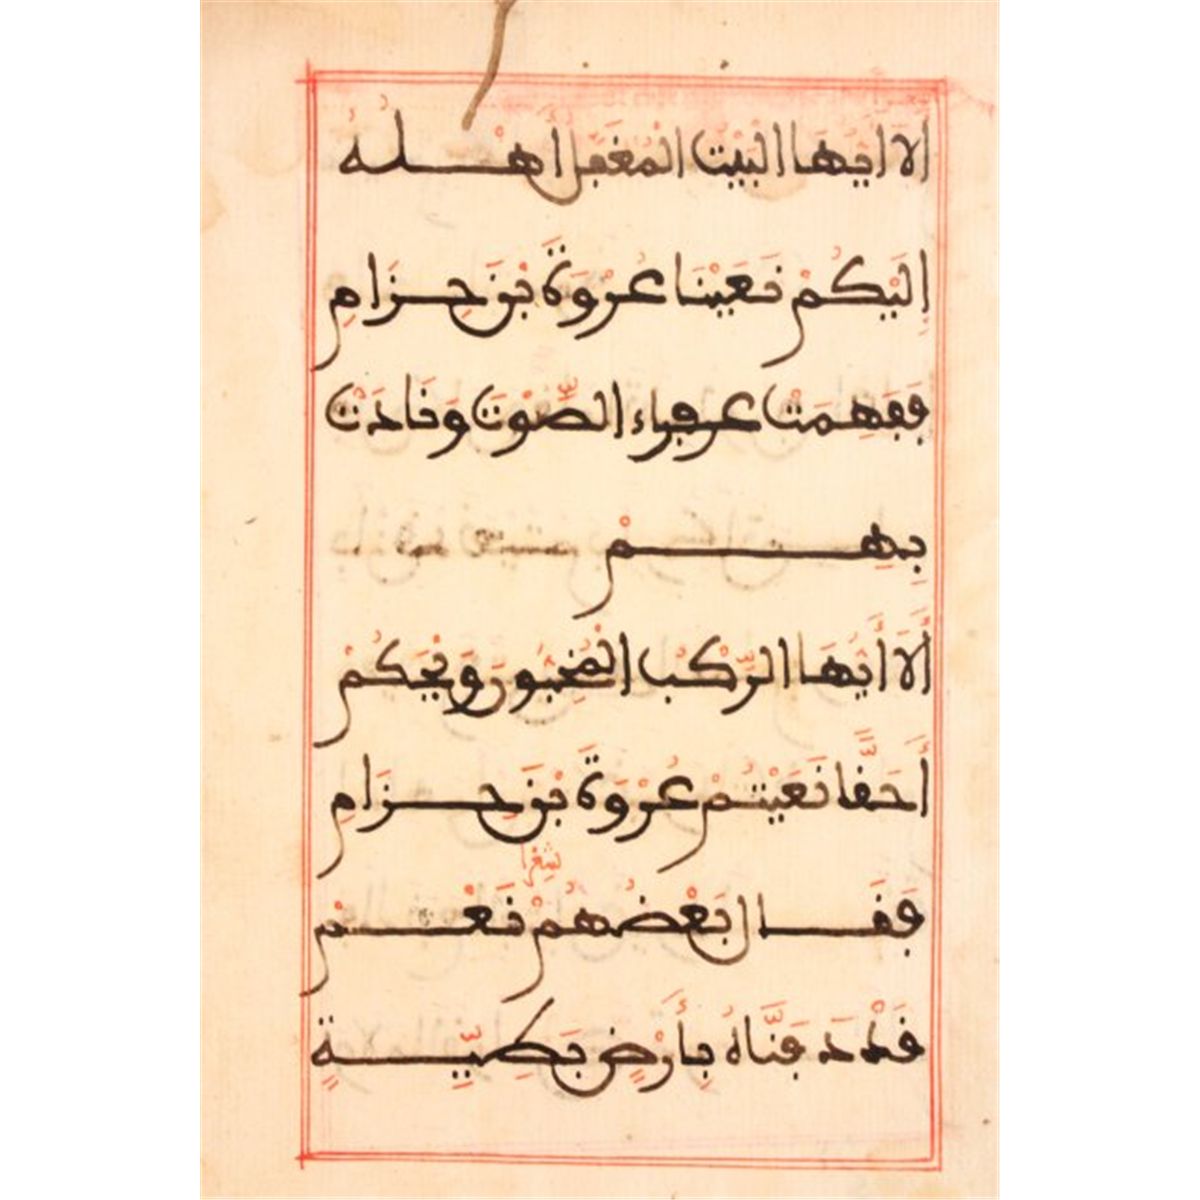 الَا اَيُّهَا الْبَيْتُ الْمُغَفَّلُ أَهْلُهُ
اِلَيْكُمْ نَعَيْنَا عُرْوَةَ بْنَ حِزَامِ
فَفَهِمَتْ عفراء الصَّوْتَ وَنَادَتْ
بِهِمْ
أَلَا أَيُّهَا الرَّكْبُ الْمُخِبُّونَ وَيْحَكُمْ
أَحَقًّا نَعَيْتُمْ عُرْوَةَ بْنَ حِزَامِ
شعرا
فَقَال بَعْضُهُمْ نَعْم
قَدْ دَفَنَّاهُ بِأَرْضٍ بَكِيَّةٍ